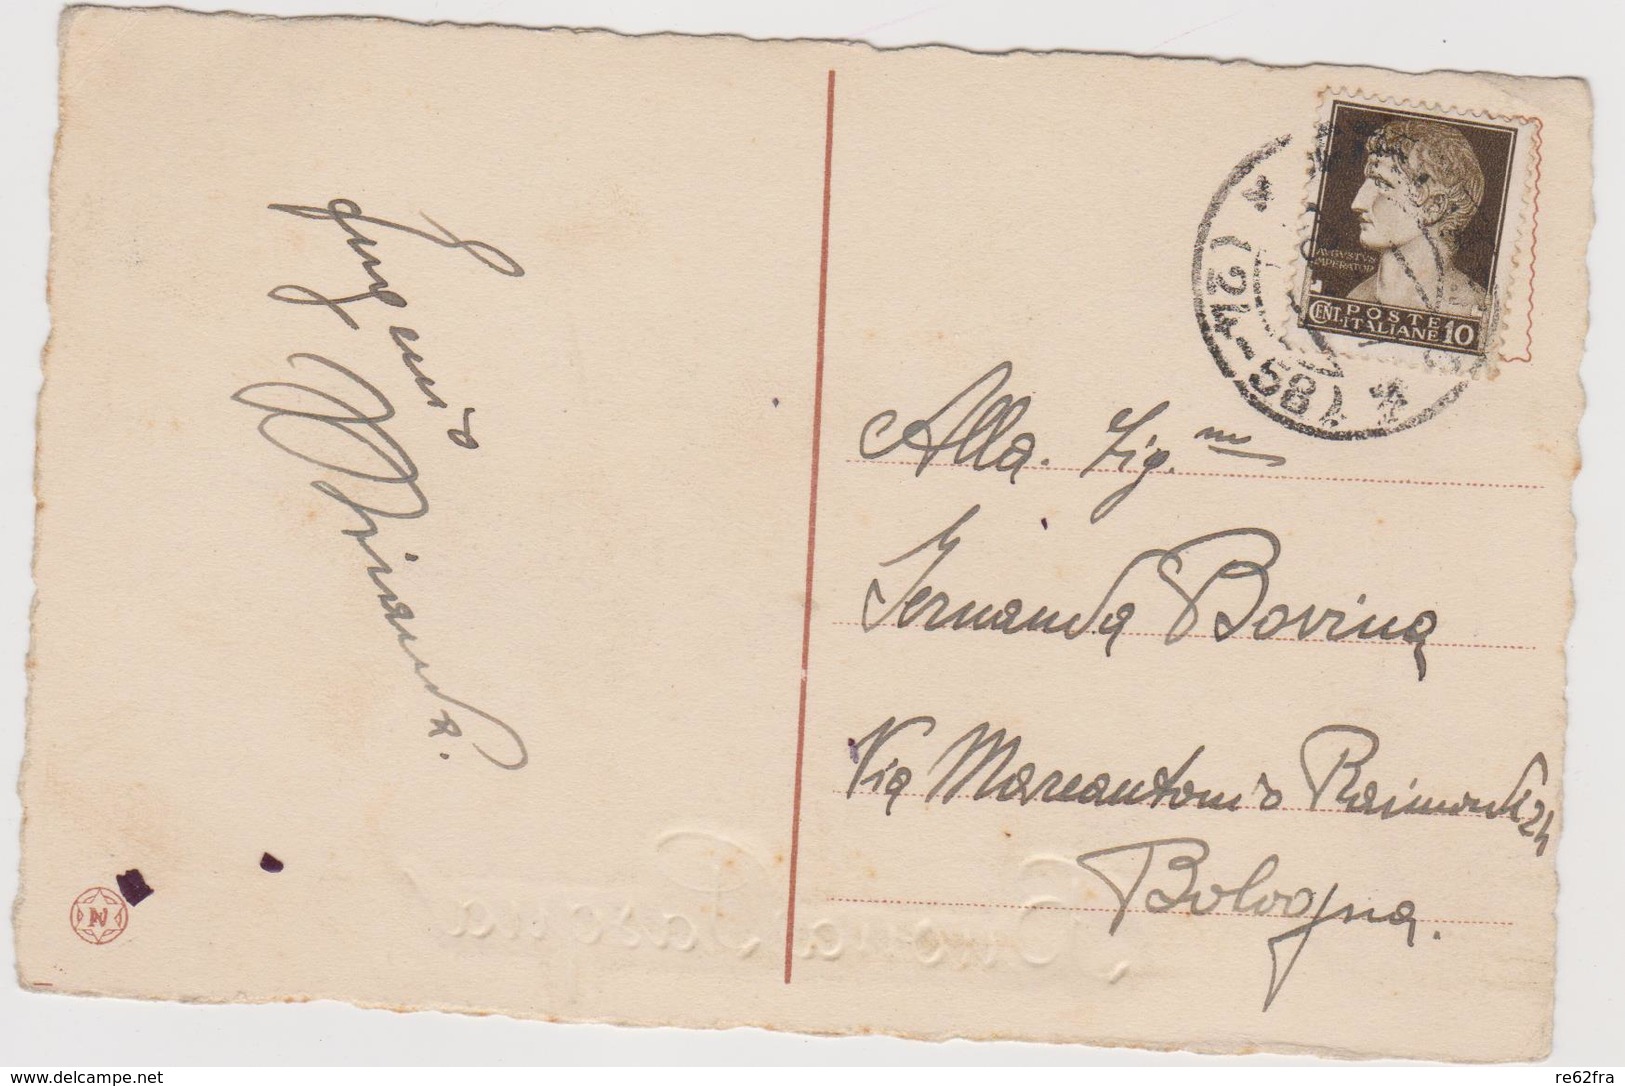 Eugenio
Miranda.
AVGVSTVS
IMPERATOR
POSTE
CENT. ITALIANE 10
(21-58)
Alla Sig.na
Fernanda Bovina
Via Marcantonio Raimondi 24
Bologna.
Buona Pasqua
N
www.delcampe.net
re62fra